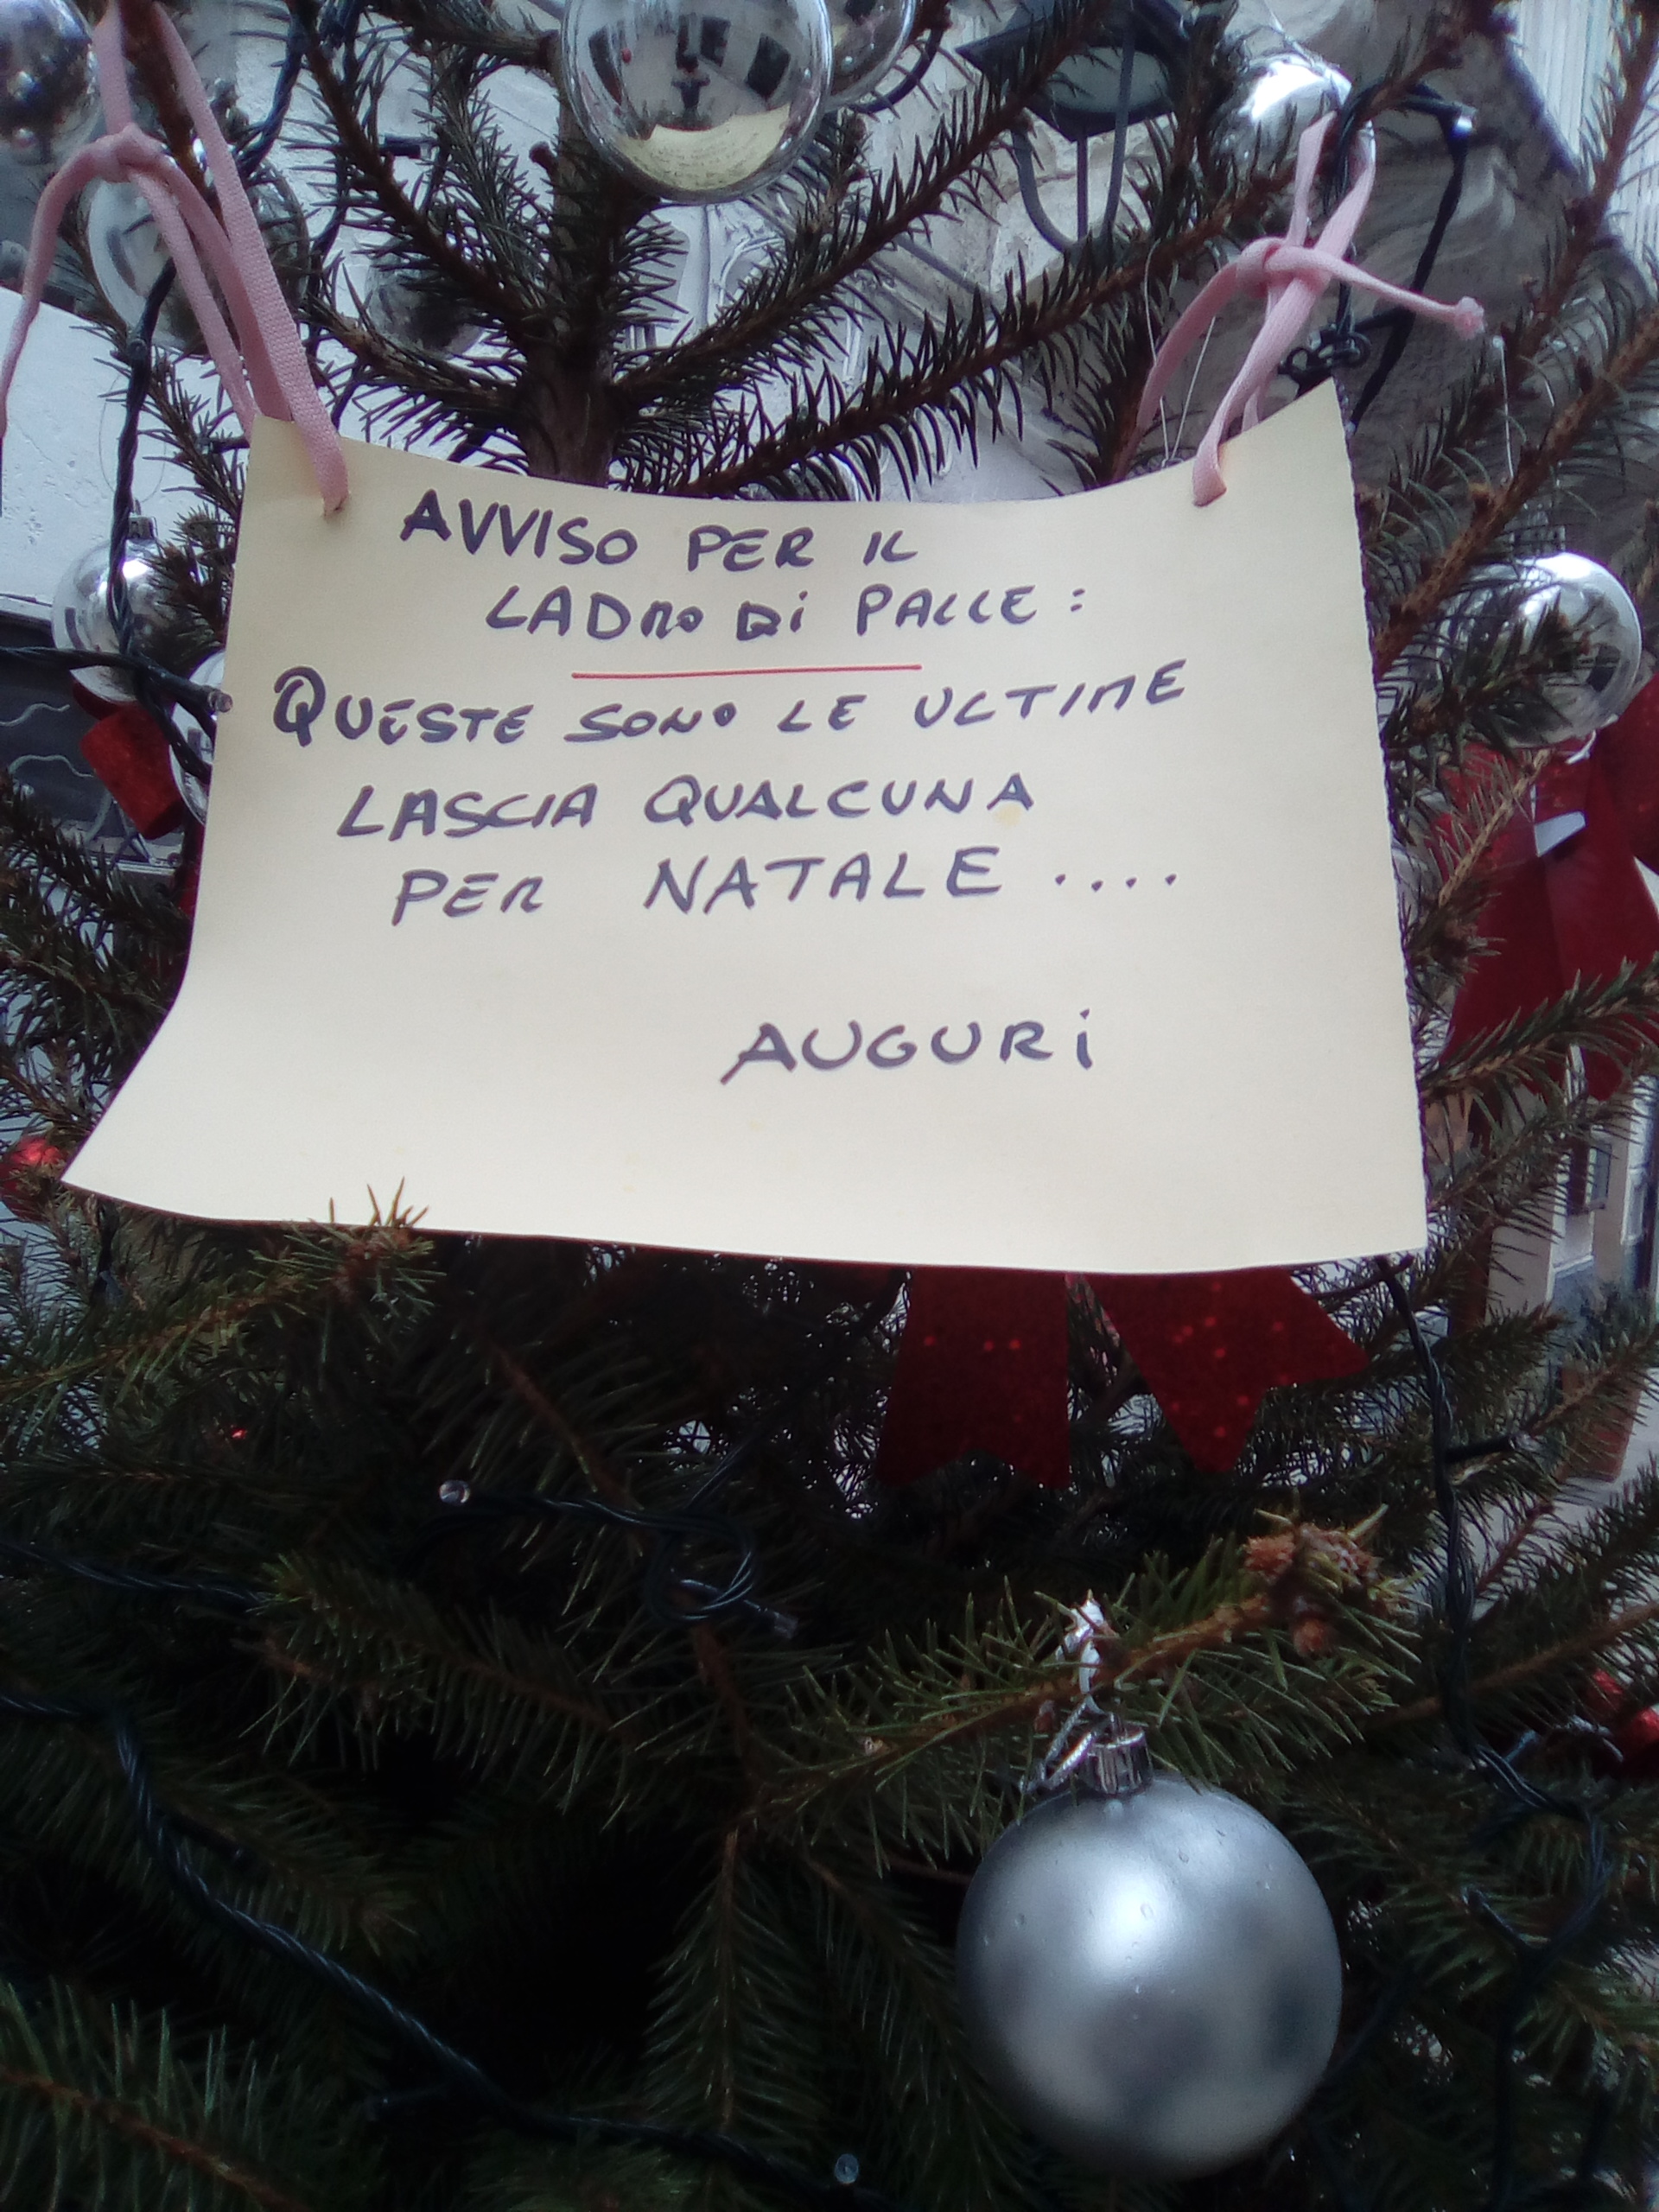 AVVISO PER IL
LADRO Di PALLE:
QUESTE SONO LE ULTIME
LASCIA QUALCUNA
PER NATALE ....
AUGURi